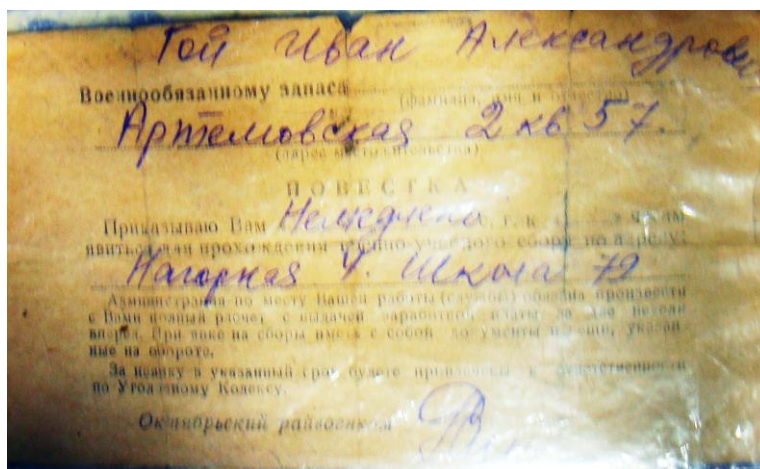 Гой Иван Александрови
Военнообязанному запаса
(фамилия, имя и отчество)
Артемовская 2 кв 57.
(адрес местожительства)
ПОВЕСТКА
Приказываю Вам Немедлено г. к часам
явиться для прохождения военно-учебного сбора по адресу:
Нагорная 4. Школа 79
Администрация по месту Вашей работы (службы) обязана произвести
с Вами полный расчет с выдачей заработной платы за две недели
вперед. При явке на сборы иметь с собой документы и вещи, указан-
ные на обороте.
За неявку в указанный срок будете привлечены к ответственности
по Уголовному Кодексу.
Октябрьский райвоенком